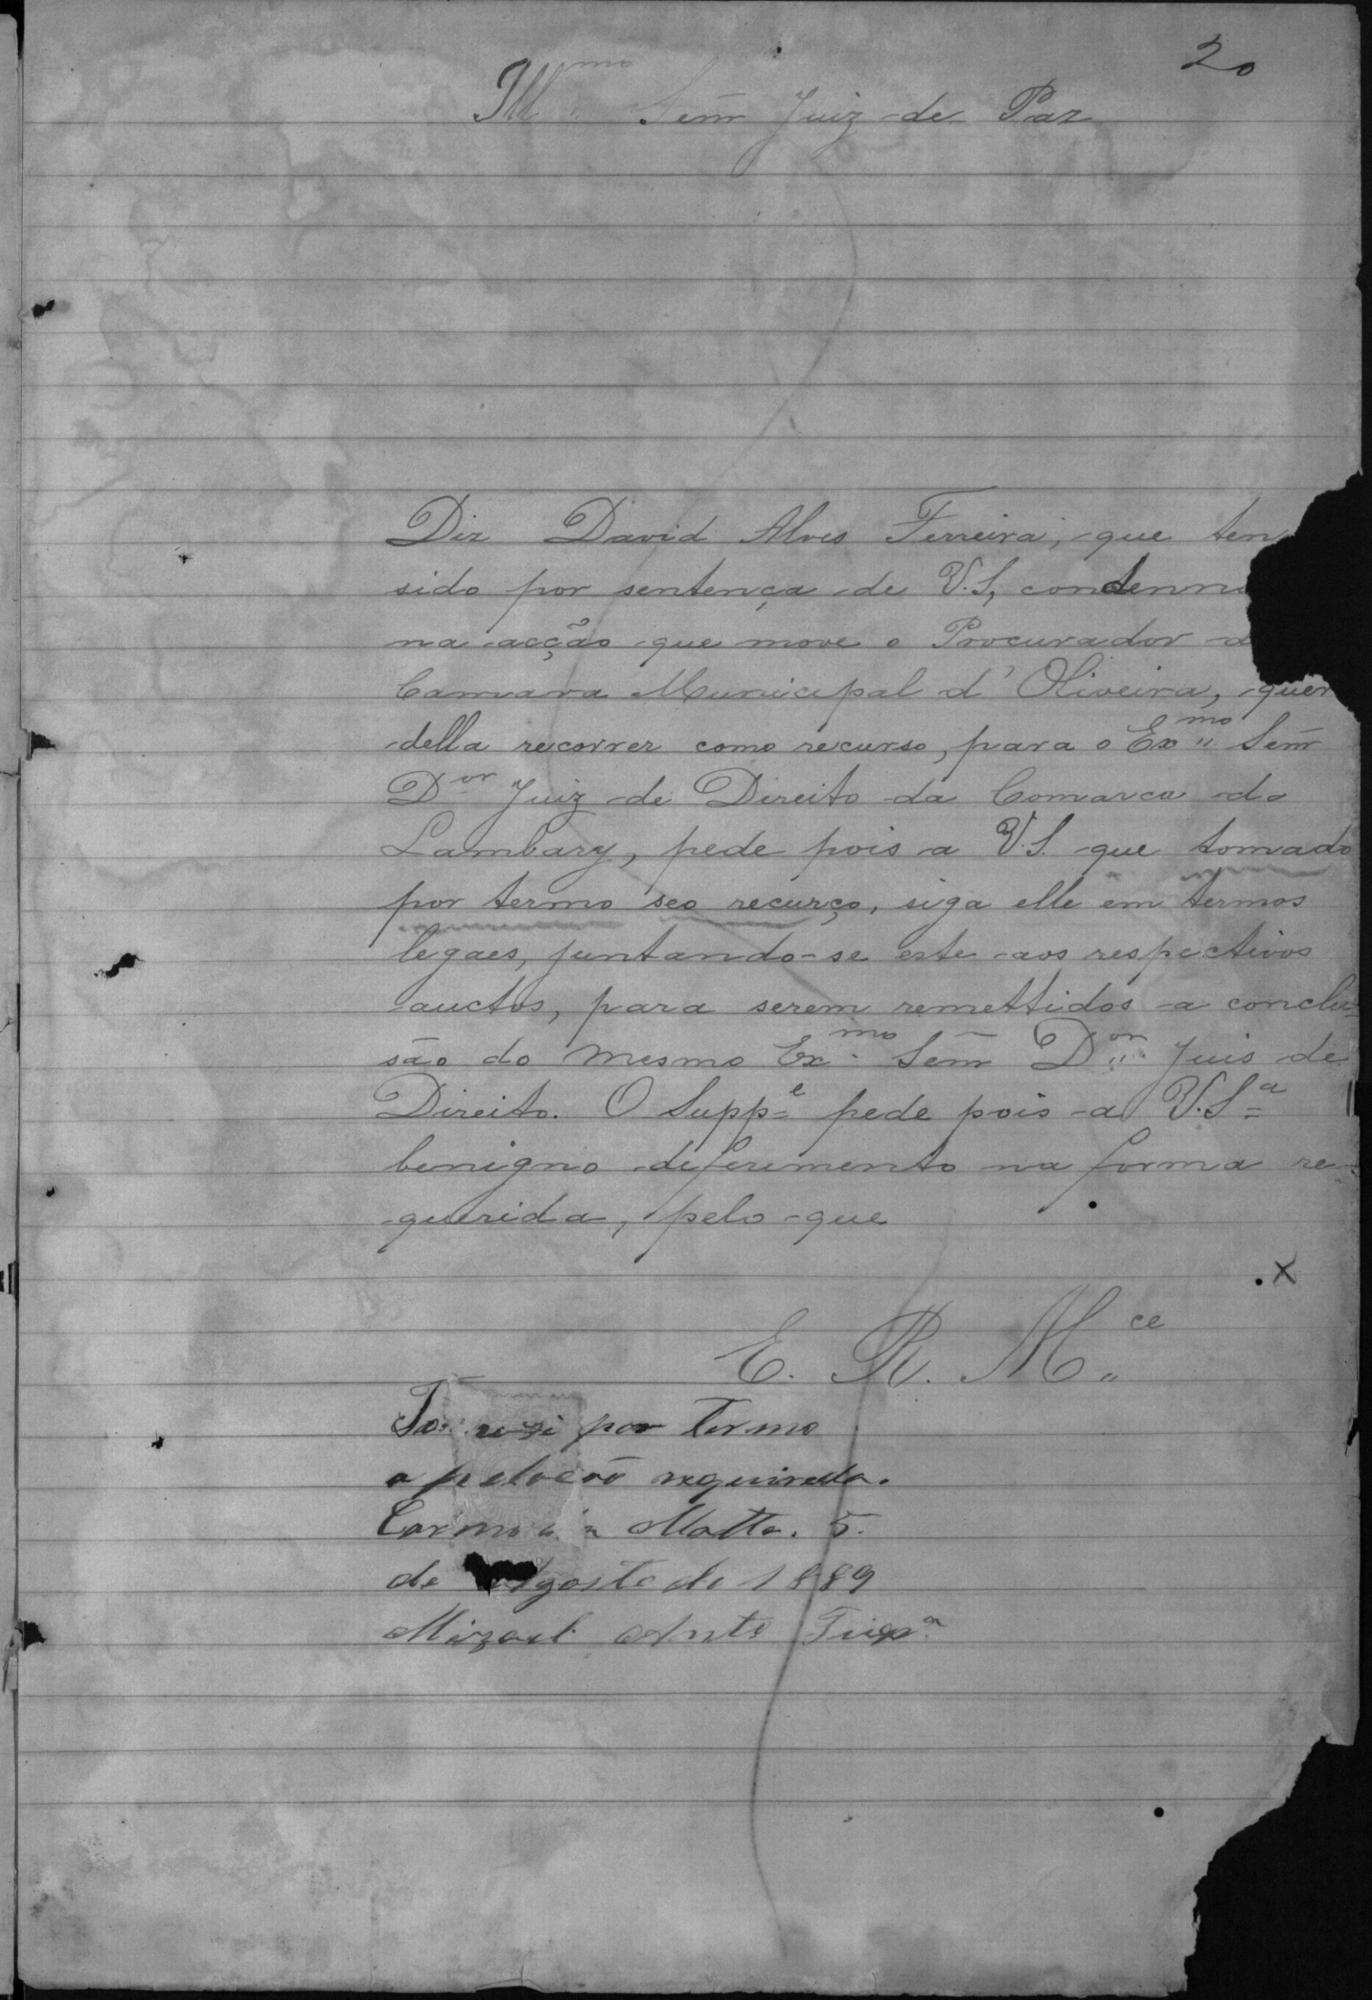 20
Ill.mo Señr Juiz de Paz
Diz David Alves Ferreira, que ten
sido por sentença de V.S, condenna
na acção que move o Procurador d
Camara Municipal d'Oliveira, quer
della recorrer como recurso, para o Ex.mo Señr
D.or Juiz de Direito da Comarca do
Lambary, pede pois a V.S. que tomado
por termo seo recurço, siga elle em termos
legaes, juntando-se este aos respectivos
auctos, para serem remettidos a conclu-
são do mesmo Ex.mo Señr D.or Juis de
Direito. O Supp.e pede pois a V.S.a
benigno deferimento na forma re-
querida, pelo que
E. R. M.ce
por termo
a pelação requirida.
Carmo da Matta. 5.
de Agosto de 1889
Mizael Anto